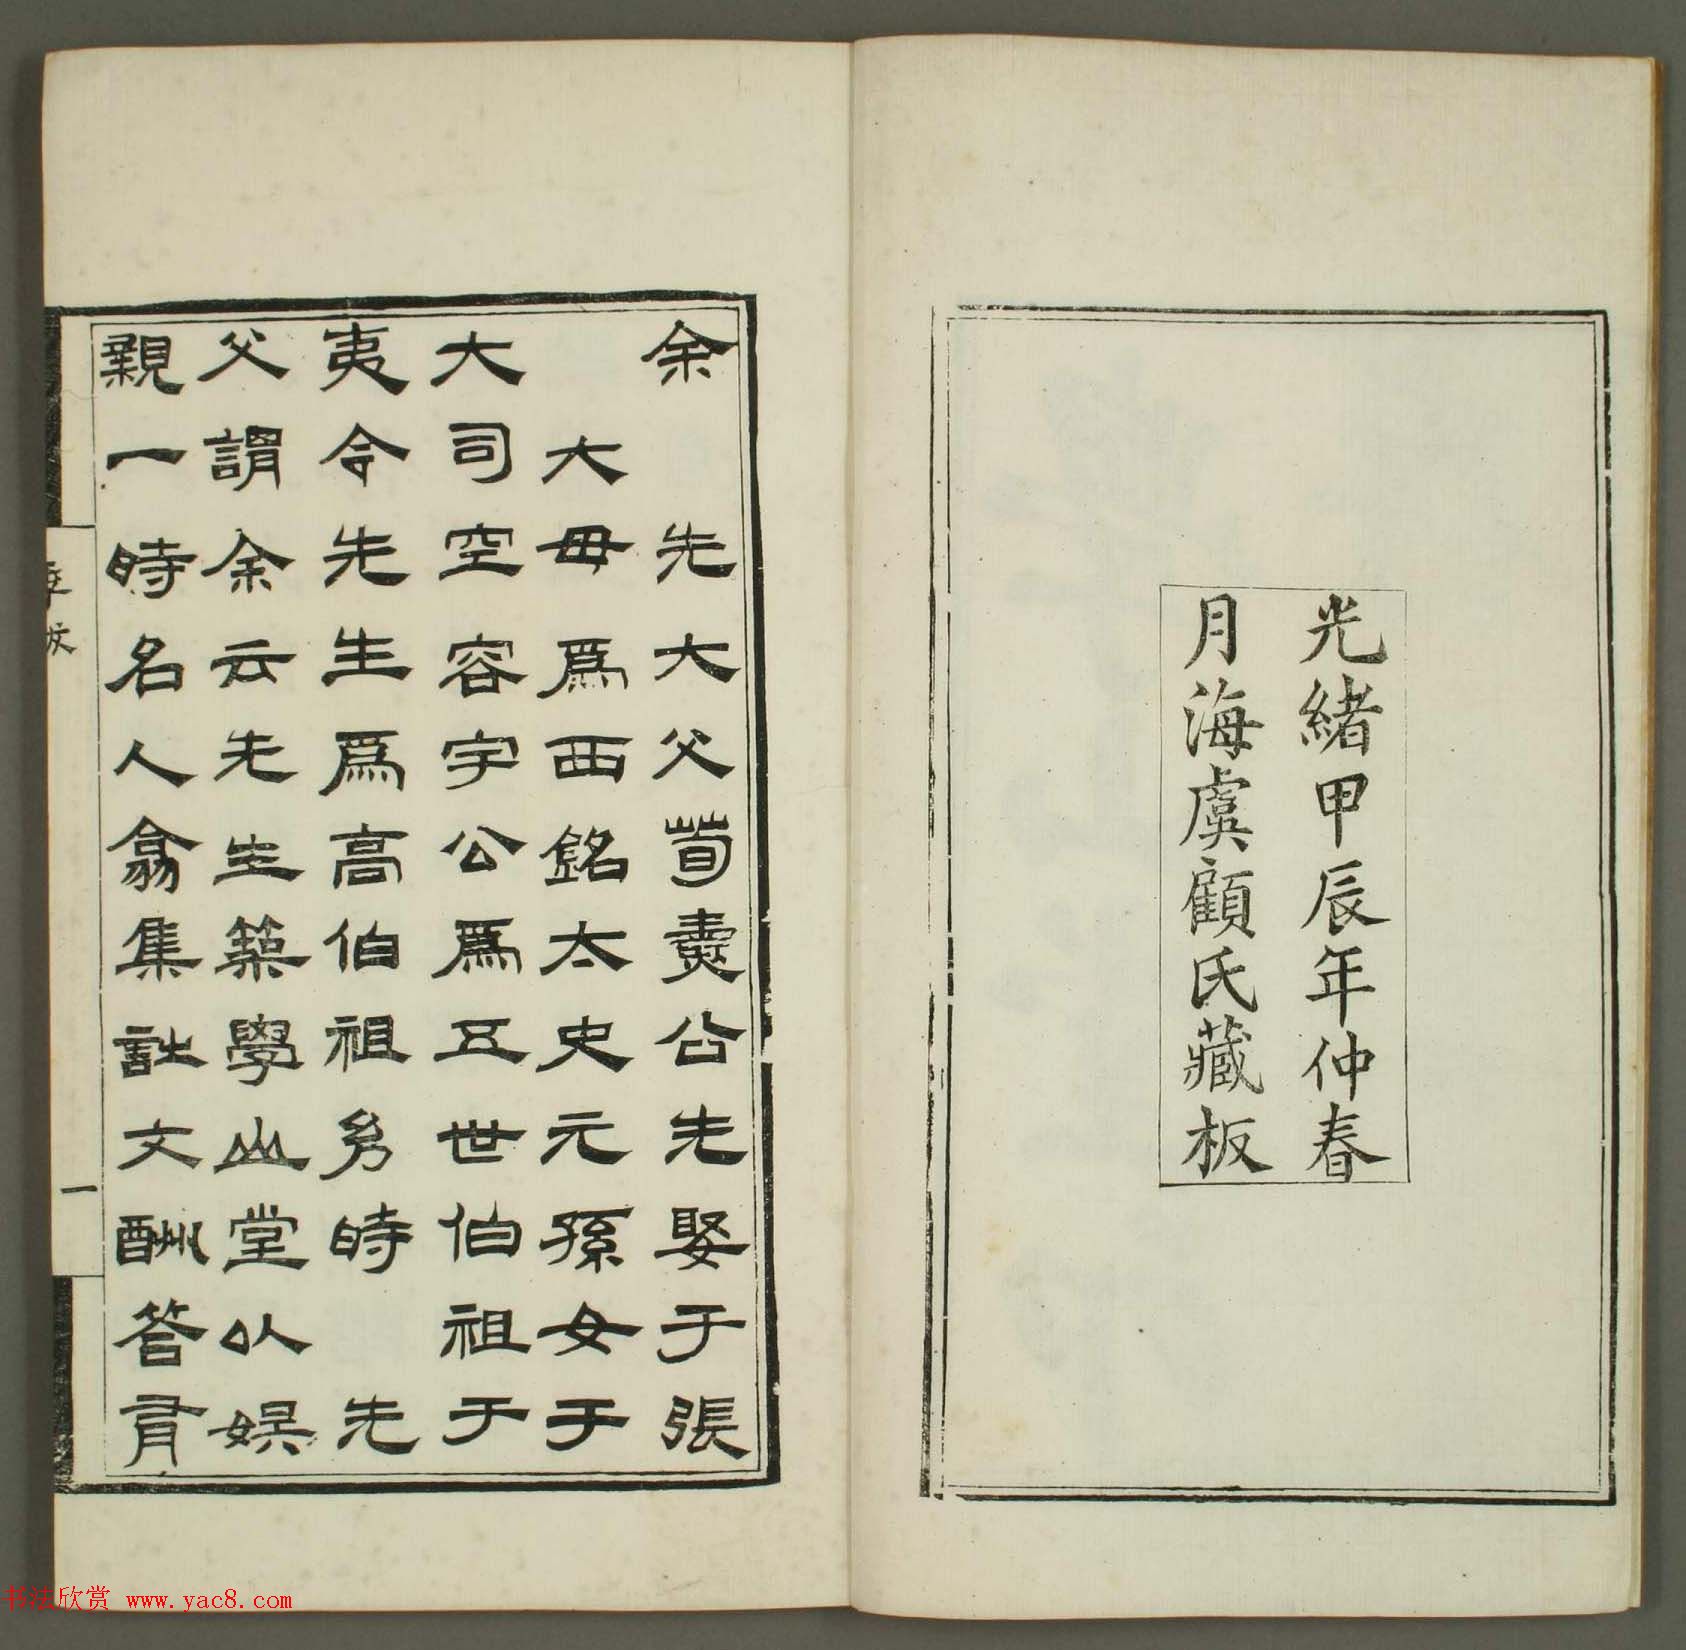 光緒甲辰年仲春
月海虞顧氏藏板
余 先大父荀公先娶于張
大母爲西銘太史元孫女于
大司空容宇公爲五世伯祖于
夷令先生爲高伯祖幼時 先
父謂余云先生築學山堂以娱
親一時名人翕集文酬答有
一
书法欣赏 www.yac8.com